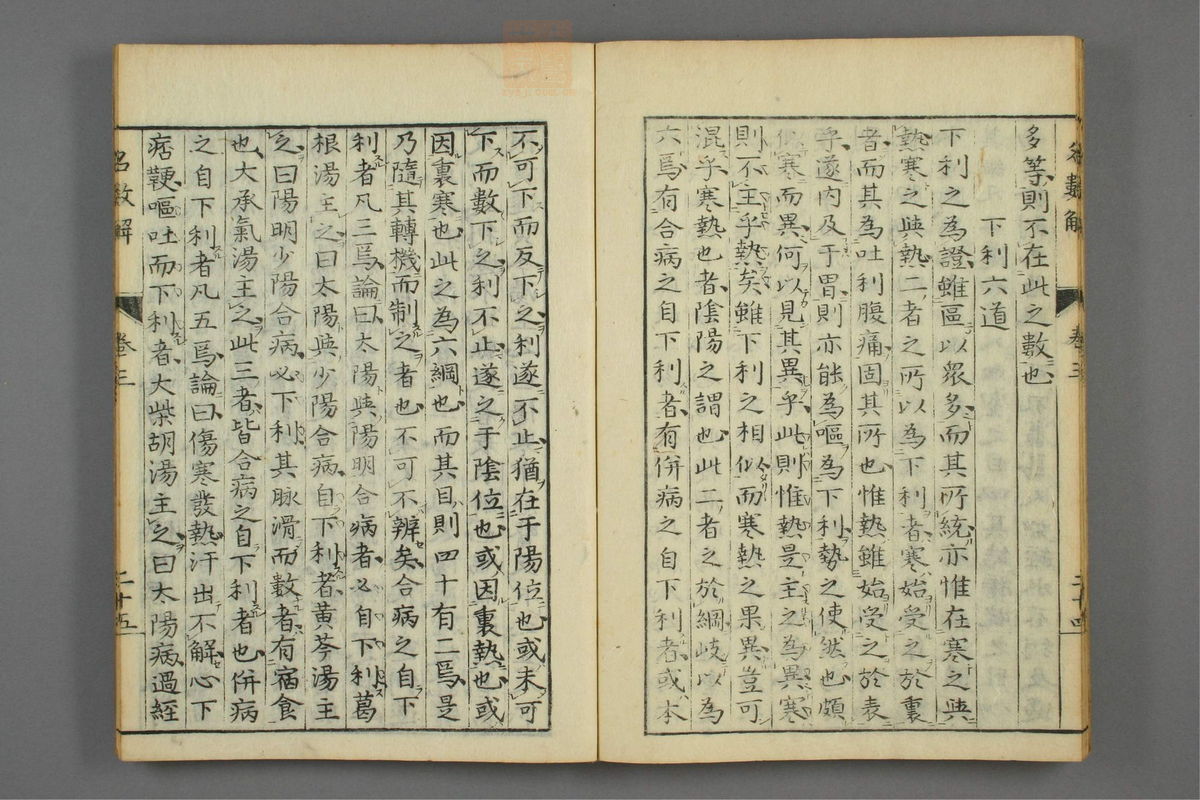 名數解
卷三
二十四
多等則不在此之數也
下利六道
下利之為證雖區以衆多而其所統亦惟在寒之與
熱寒之與熱二者之所以為下利者寒始受之於裏
者而其為吐利腹痛固其所也惟熱雖始受之於表
乎遂內及于胃則亦能為嘔為下利勢之使然也頗
似寒而異何以見其異乎此則惟熱是主之為異寒
則不主乎熱矣雖下利之相似而寒熱之果異豈可
混乎寒熱也者陰陽之謂也此二者之於綱岐以為
六焉有合病之自下利者有併病之自下利者或本
不可下而反下之利遂不止猶在于陽位也或未可
下而數下之利不止遂之于陰位也或因裏熱也或
因裏寒也此之為六綱也而其目則四十有二焉是
乃隨其轉機而制之者也不可不辨矣合病之自下
利者凡三焉論曰太陽與陽明合病者必自下利葛
根湯主之曰太陽與少陽合病自下利者黃芩湯主
之曰陽明少陽合病必下利其脉滑而數者有宿食
也大承氣湯主之此三者皆合病之自下利者也併病
之自下利者凡五焉論曰傷寒發熱汗出不解心下
痞鞕嘔吐而下利者大柴胡湯主之曰太陽病過經
名數解
卷三
二十五